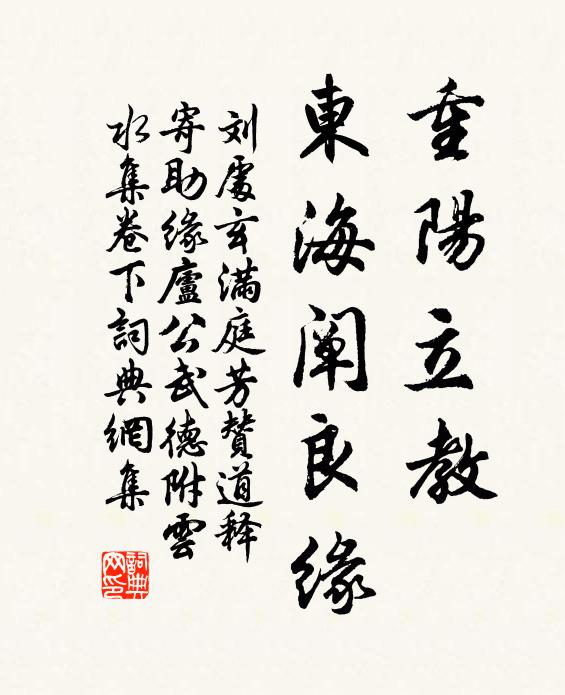 重陽立教
東海阐良緣
刘處玄满庭芳賛道释
寄助缘廬公武德附雲
水集卷下詞典網集
詞典網印